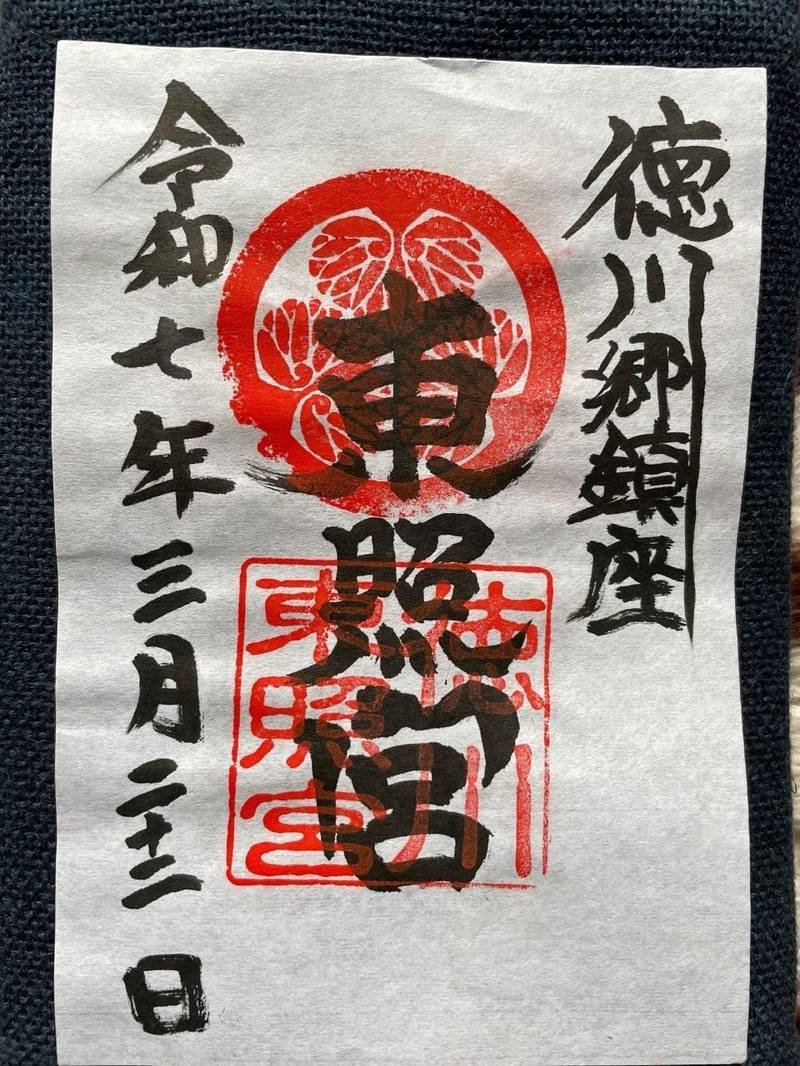 徳川郷鎮座
東照宮
徳川
東照宮
令和七年三月二十二日